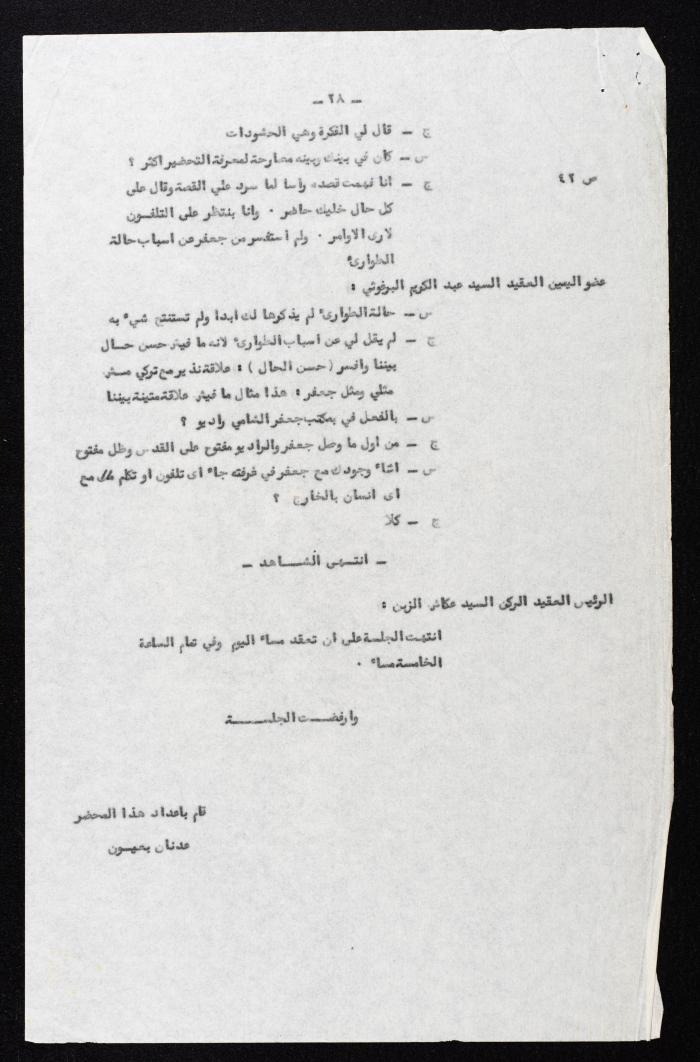 — ٢٨ —
ج — قال لي الفكرة وهي الحشودات
س — كان في بينك وبينه مصارحة لمعرفة التحضير اكثر ؟
ص ٤٢
ج — انا فهمت قصده راسا لما سرد علي القصة وقال على
كل حال خليك حاضر . وانا بنتظر على التلفون
لارى الاوامر . ولم استفسر من جعفر عن اسباب حالة
الطوارئ
عضو اليمين العقيد السيد عبد الكريم البرغوثي :
س — حالة الطوارئ لم يذكرها لك ابدا ولم تستنتج شيء به
ج — لم يقل لي عن اسباب الطوارئ لانه ما فيش حسن حال
بيننا وافسر ( حسن الحال ) : علاقة نذير مع تركي مش
مثلي ومثل جعفر : هذا مثال ما فيش علاقة متينة بيننا
س — بالفعل في بمكتب جعفر الشامي راديو ؟
ج — من اول ما وصل جعفر والراديو مفتوح على القدس وظل مفتوح
س — اثناء وجودك مع جعفر في غرفته جاء اى تلفون او تكلم مع
اى انسان بالخارج ؟
ج — كلا
— انتهى الشاهد —
الرئيس العقيد الركن السيد عكاش الزبن :
انتهت الجلسة على ان تعقد مساء اليوم وفي تمام الساعة
الخامسة مساء .
وارفضت الجلسة
قام باعداد هذا المحضر
عدنان بعيون